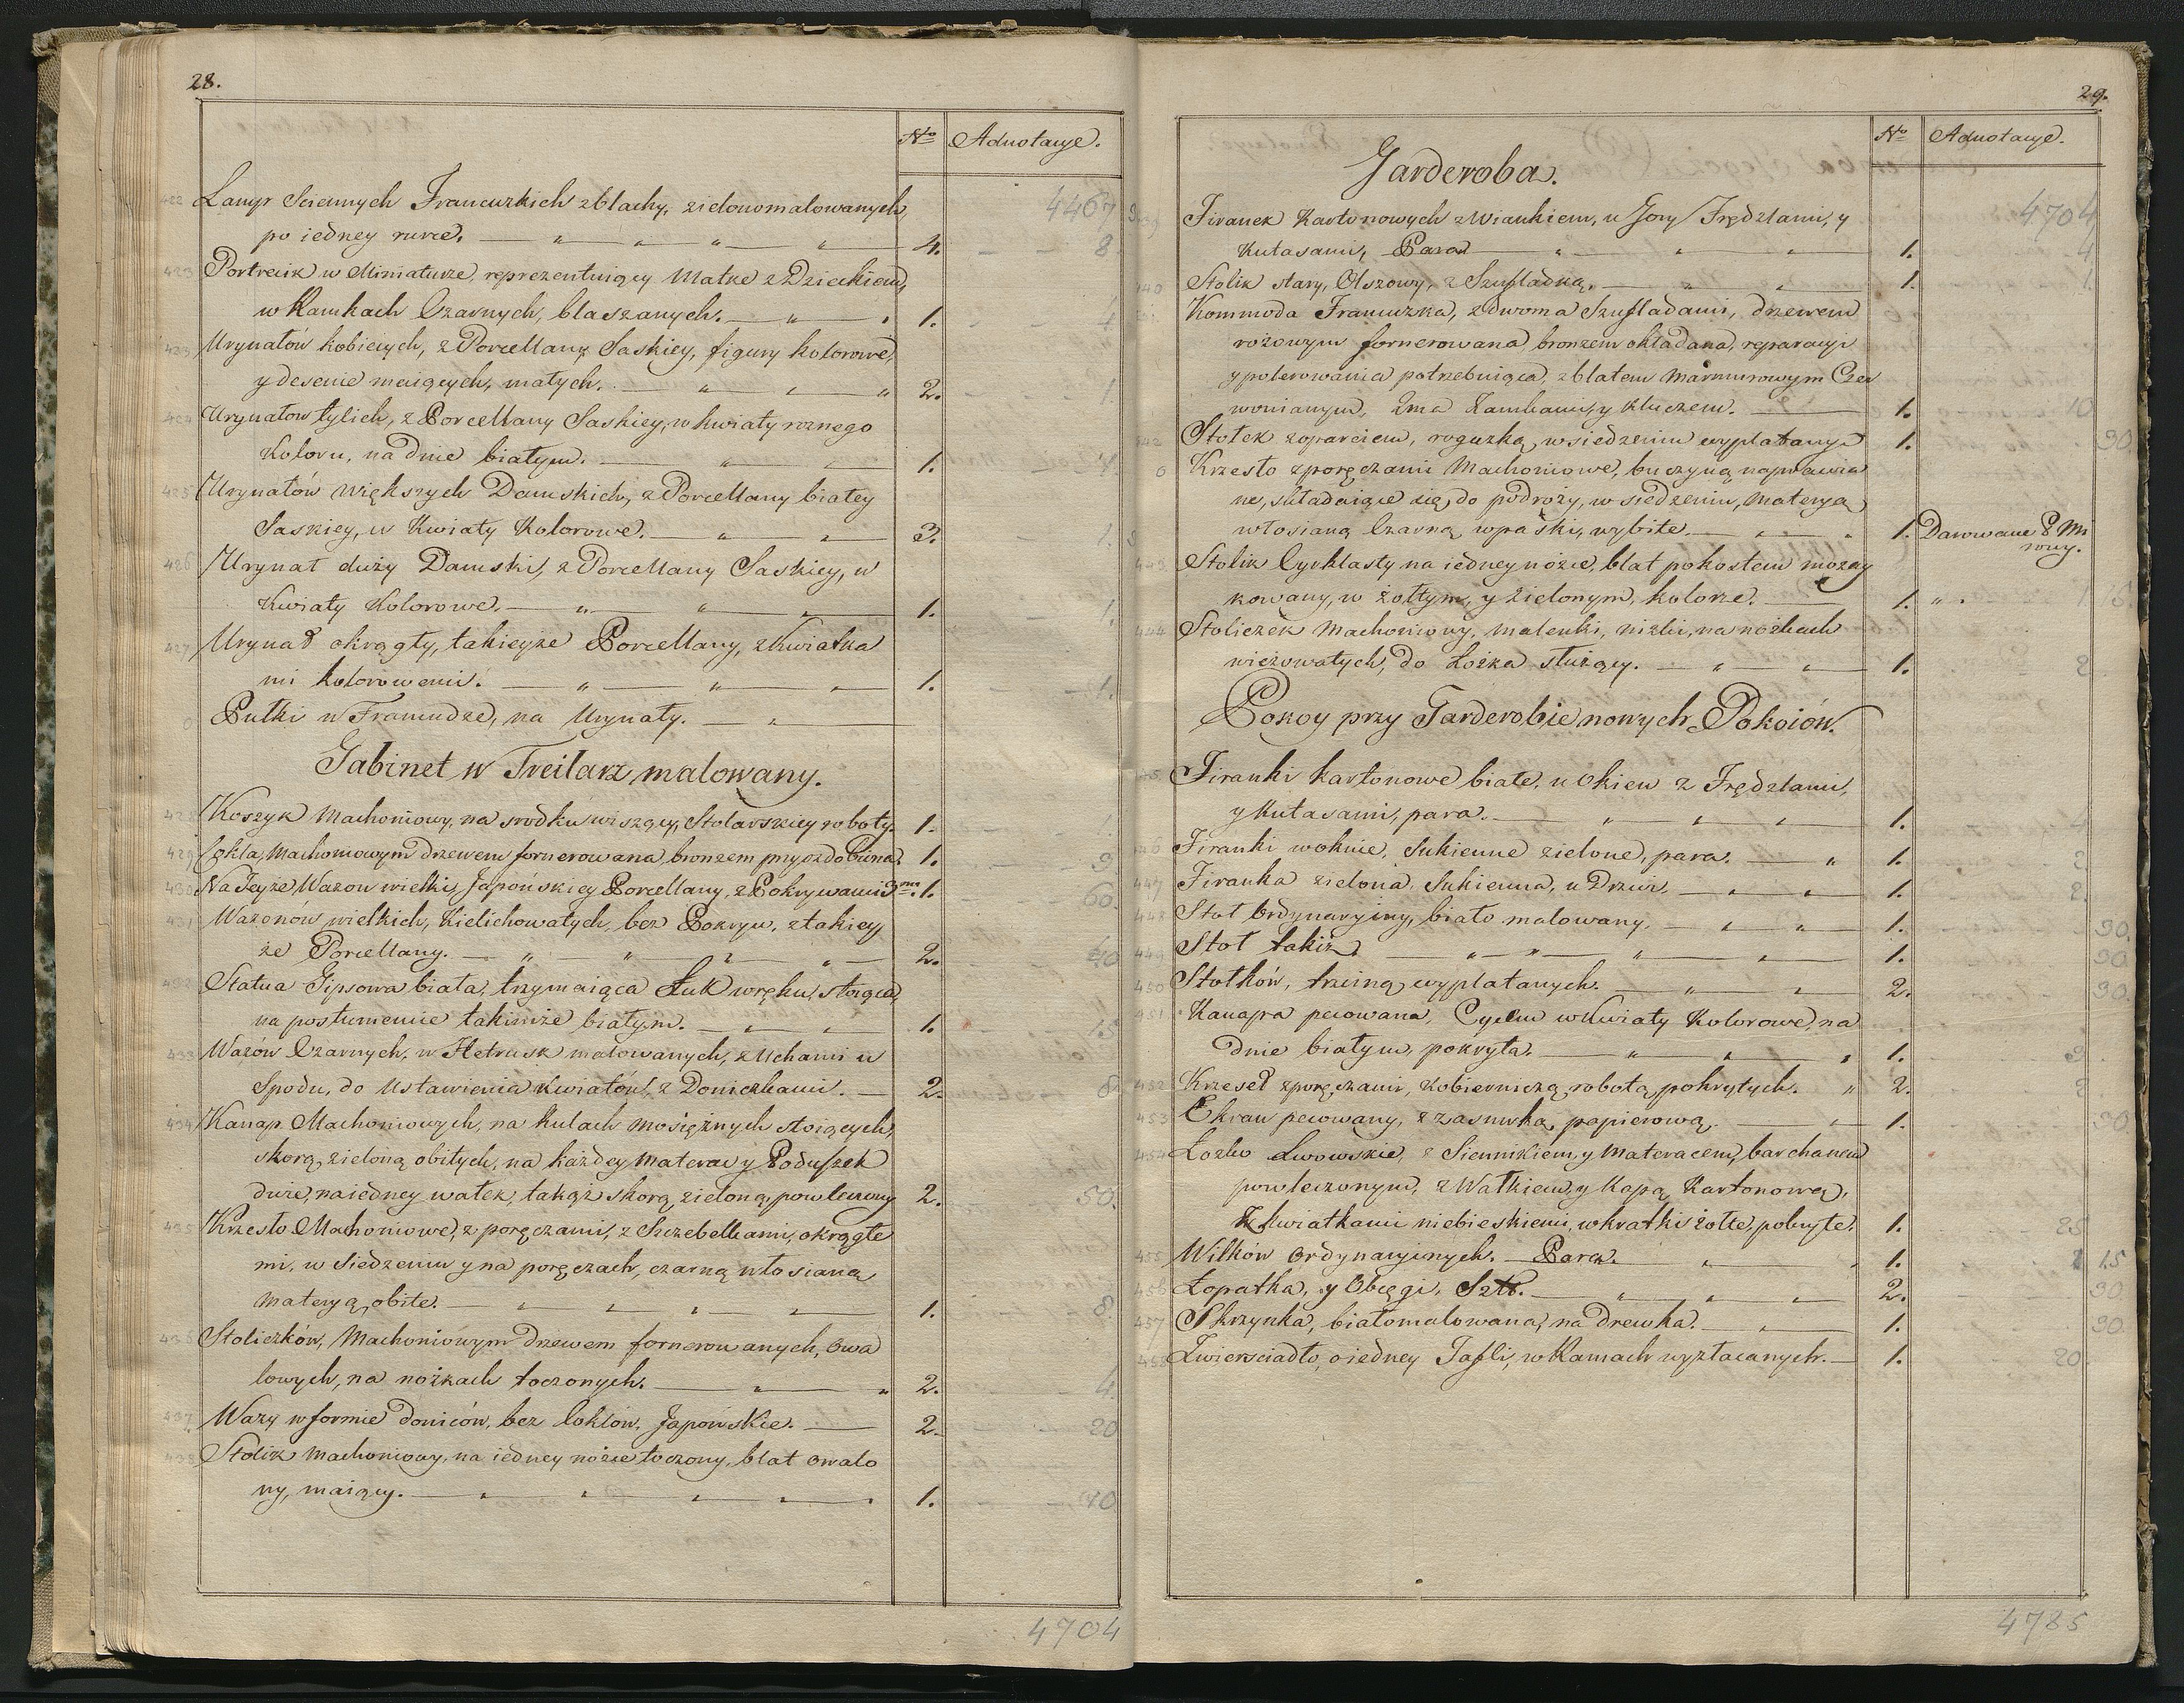 28.
No Adnotacye.
4467
422 Lamp Sciennych Francuzkich z blachy, zielono malowanych,
po iedney rurce. 4. 8
423 Portrecik w Miniaturze, reprezentuiący Matkę z Dzieckiem,
w Ramkach Czarnych, blaszanych. 1. 4
423 Urynałów kobiecych, z Porcellany Saskiey, figury kolorowe,
y desenie maiących, małych. 2. 1.
424 Urynałow tylich, z Porcellany Saskiey, w kwiaty roznego
Koloru, na dnie białym. 1.
425 Urynałów większych Damskich, z Porcellany białey
Saskiey, w Kwiaty Kolorowe. 3. 1.
426 Urynał duży Damski, z Porcellany Saskiey, w
Kwiaty Kolorowe. 1. 1.
427 Urynał okrągły, takieyże Porcellany, z Kwiatka
mi kolorowemi. 1. 1.
0 Pułki w Framudze, na Urynały.
Gabinet w Treilarz malowany.
428 Koszyk Machoniowy, na srodku wiszący, Stolarskiey roboty. 1.
429 Cokla, Machoniowym drzewem fornerowana, bronzem przyozdobiona. 1. 3
430 Na Teyże, Wazon wielki, Japońskiey Porcellany, z Pokrywami 3ma. 1. 60.
431 Wazonów wielkich, Kielichowatych, bez Pokryw, z takiey
że Porcellany. 2. 40
432 Statua Gipsowa biała, trzymaiąca Łuk w ręku, stoiąca,
na postumencie takimże białym. 1. 15
433 Wazów Czarnych, w Hetrusk malowanych, z Uchami u
Spodu, do Ustawienia kwiatów, z Doniczkami. 2. 8
434 Kanap Machoniowych, na Kulach mosiężnych stoiących,
skorą zieloną obitych, na każdey materac y Poduszek
duże, na iedney wałek, takąż skorą zieloną, powleczony 2. 50.
435 Krzesło Machoniowe, z poręczami, z Szczebelkami, okrągłe
mi, w Siedzeniu y na poręczach, czarną włosianą
materyą, obite. 1. 8.
436 Stoliczków, Machoniowym drzewem fornerowanych, owa
lowych, na nożkach toczonych. 2. 4.
437 Wazy w formie Donicow, bez Coklów, Japońskie. 2. 20
438 Stolik Machoniowy, na iedney nożce toczony, blat owalo
ny, maiący. 1. 10
4704
29.
No Adnotacye.
Garderoba.
4704
439 Firanek Kartonowych z Wiankiem, u Gory Frędzlami, y
Kutasami, Para 1. 4
440 Stolik stary, Olszowy, z Szufladką. 1. 1.
Kommoda Francuzka, z dwoma Szufladami, drzewem
rożowym fornerowana, bronzem okładana, reparacyi
y polerowania potrzebuiąca, z blatem Marmurowym Czer
wonianym, 2ma Zamkami, y Kluczem. 1. 10
442 Stołek z oparciem, roguzką, w siedzeniu wyplatany. 1. 90.
0 Krzesło z poręczami Machoniowe, buczyną naprawia
ne, składaiące się, do podroży, w siedzeniu, materyą
włosianą Czarną w paski, wybite. 1. Darowane P. Mi
rowy.
443 Stolik Cyrklasty na iedney nożce, blat pokostem mozay
kowany, w żołtym, y zielonym, kolorze. 1. 1. 15.
444 Stoliczek Machoniowy, malenki, nizki, na nożkach
wieżowatych, do Łożka służący. 1. 2
Pokoy przy Garderobie nowych Pokoiów.
445 Firanki Kartonowe białe, u Okien z Frędzlami,
y Kutasami, para. 1. 4
446 Firanki w oknie, Sukienne zielone, para. 1. 2
447 Firanka zielona, Sukienna, u Drzwi. 1. 2.
448 Stoł Ordynaryiny, biało malowany. 1. 90.
449 Stoł takiż 1. 90
450 Stołków, trzciną, wyplatanych. 2. 90.
451 Kanapa pecowana, Cycem w Kwiaty Kolorowe, na
dnie białym, pokryta. 1. 3
452 Krzeseł z poręczami, kobierniczą robotą, pokrytych. 2. 2.
453 Ekran pecowany, z zasuwką papierową. 1. 90
454 Łozko Lwowskie, z Siennikiem, y Materacem, barchanem
powleczonym, z Wałkiem, y Kapą Kartonową,
z Kwiatkami niebieskiemi, w kratki żołte, pokryte. 1. 25
455 Wilków Ordynaryinych. Para. 1. 1 15
456 Łopatka, y Obcęgi, Szt. 2. 90
457 Skrzynka, biało malowana, na drewka. 1. 90
458 Zwierciadło, o iedney Tafli, w Ramach wyzłacanych. 1. 20.
4785